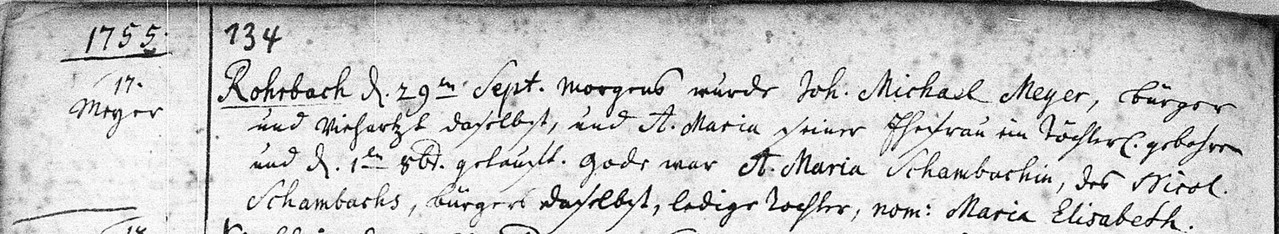 1755.
134
17.
Meyer
Rohrbach d. 29ten Sept. morgens wurde Joh. Michael Meyer, bürger
und Viehartzt daselbst, und A. Maria seiner Ehefrau ein Töchterl. gebohren
und d. 1ten 8br. getauft. Gode war A. Maria Schambachin, des Nicol.
Schambachs, bürgers daselbst, ledige Tochter, nom: Maria Elisabeth.